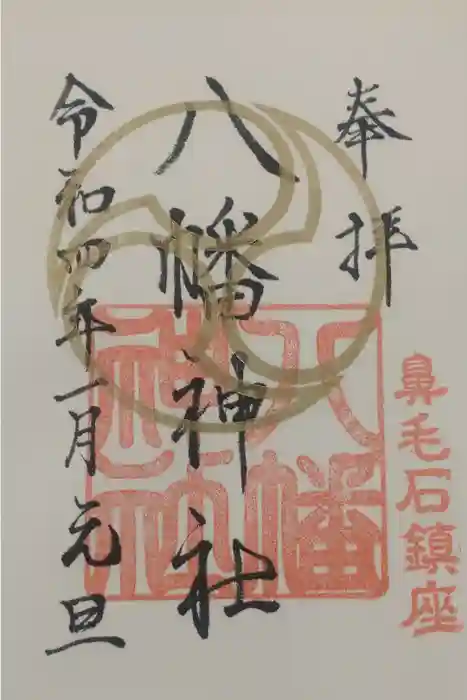 奉拝
鼻毛石鎮座
八幡神社
八幡神社
令和四年一月元旦